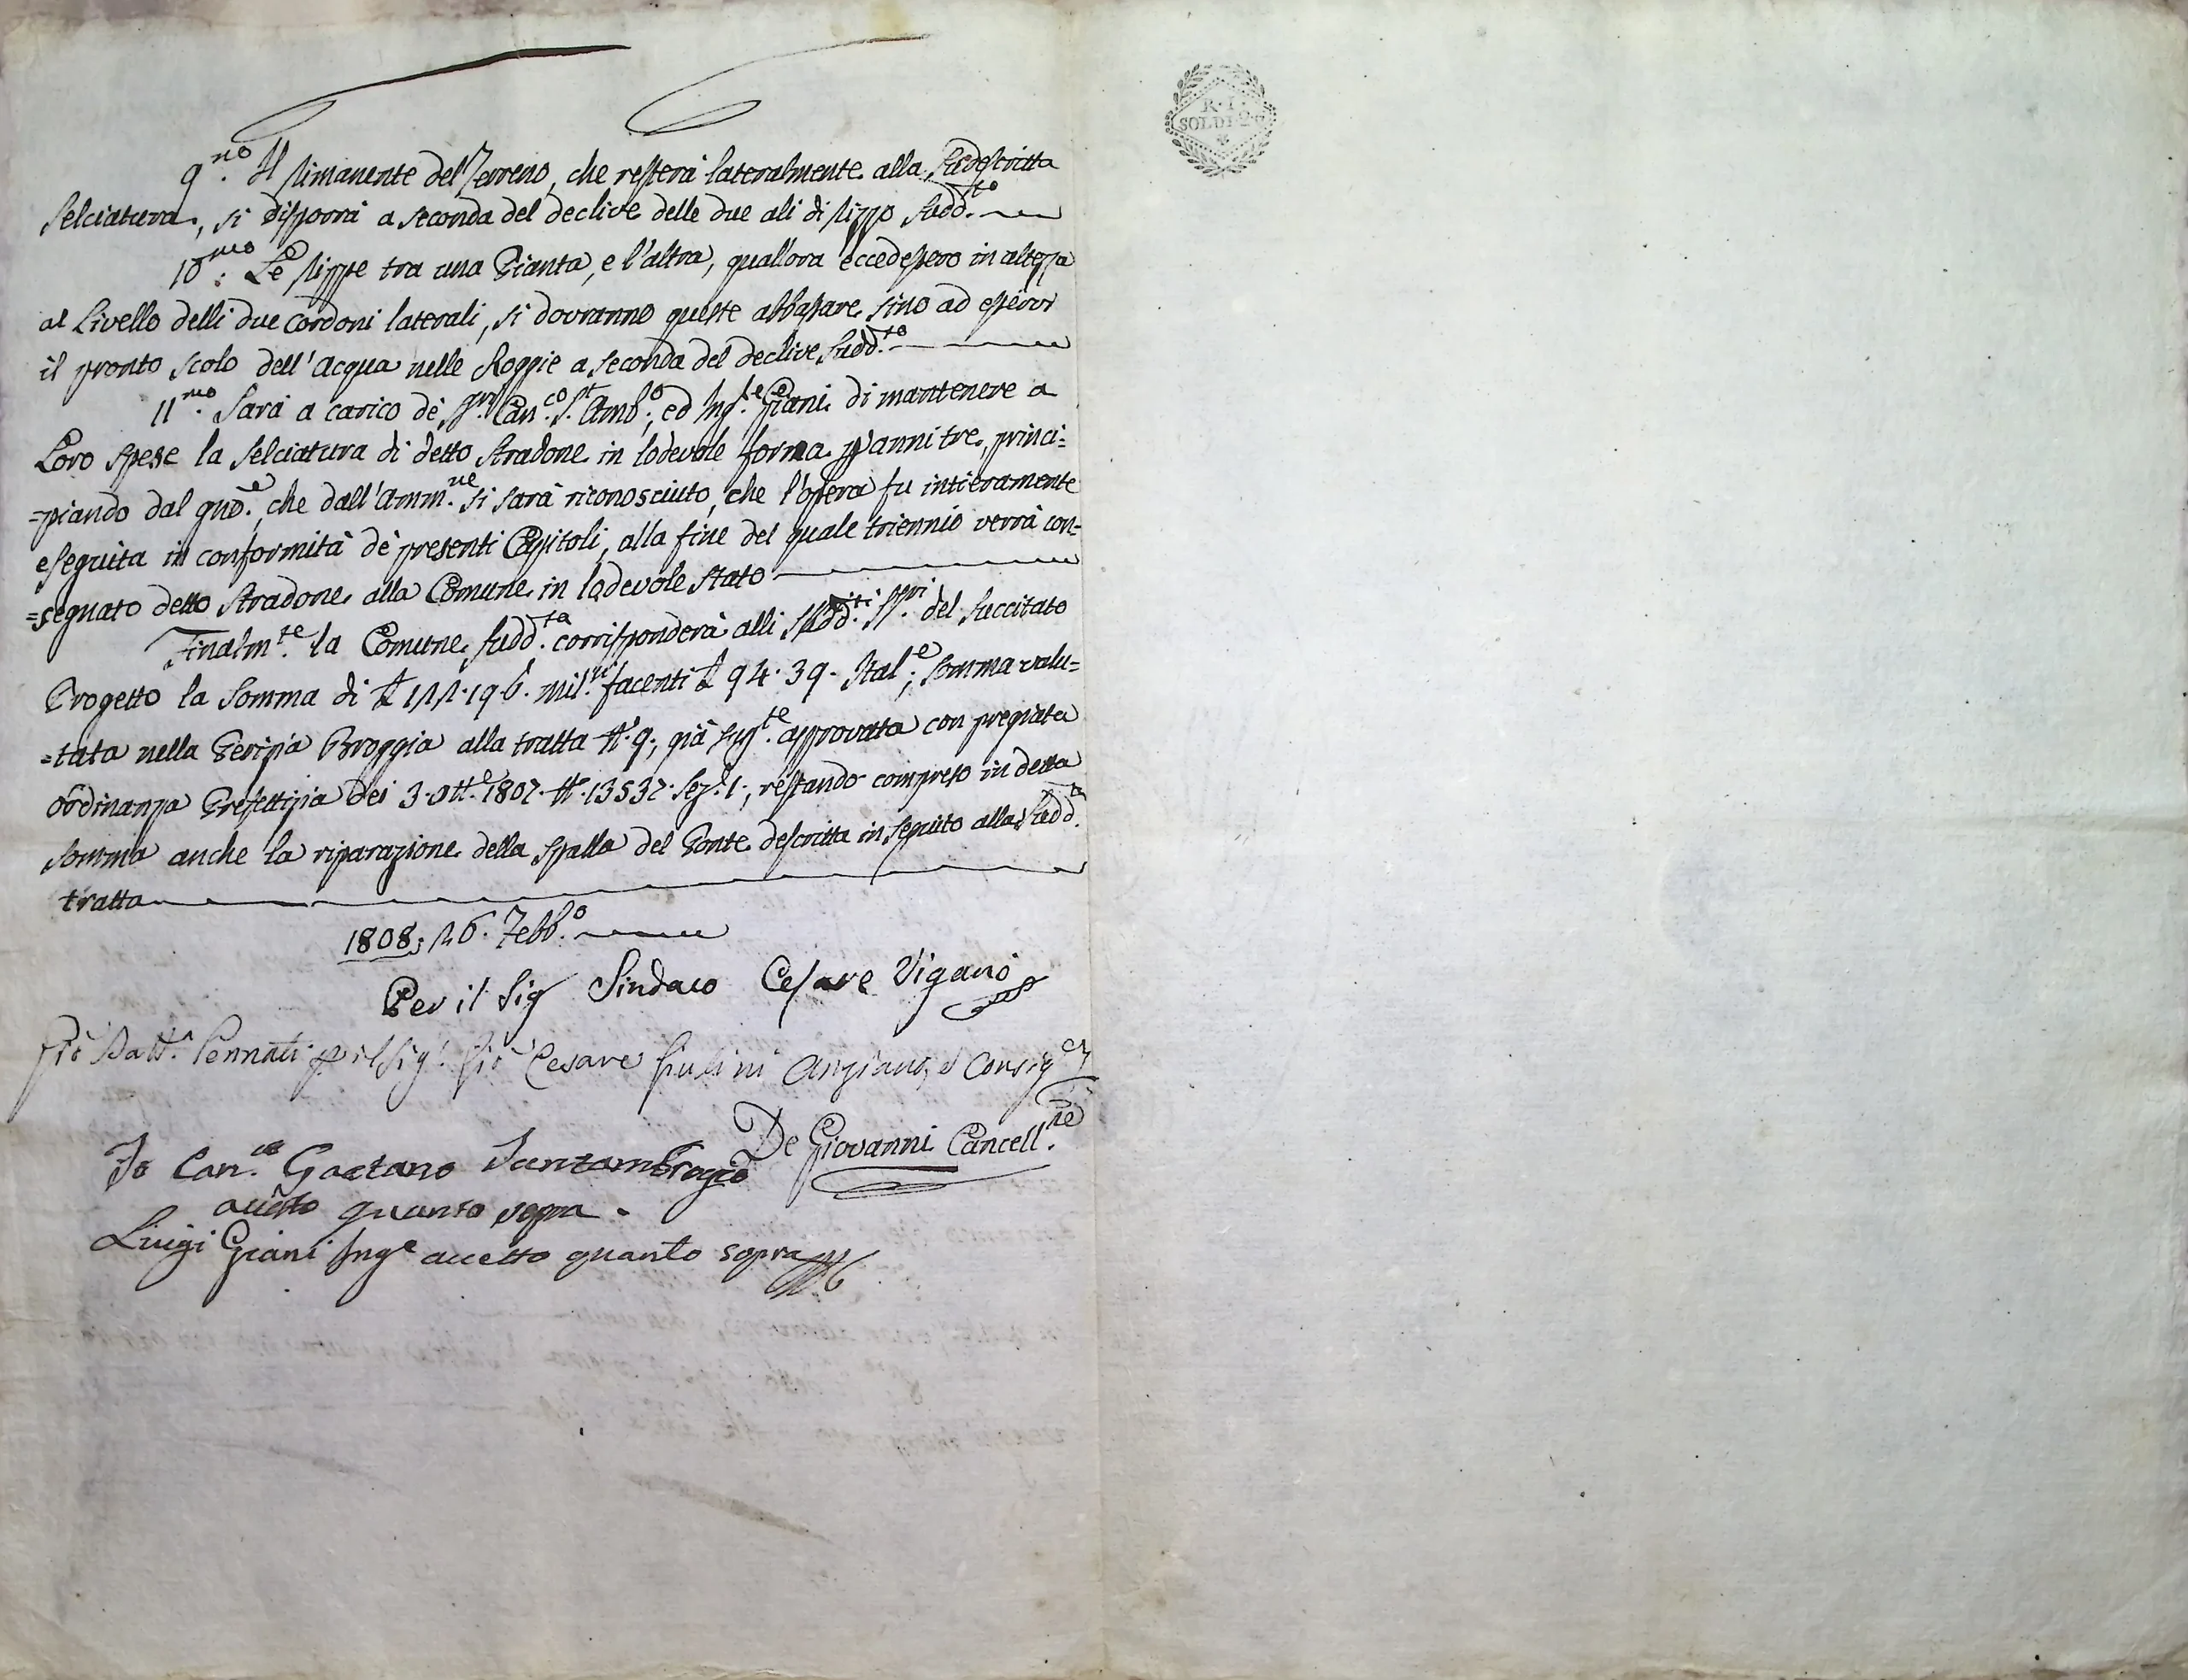 9.no Il rimanente del Terreno, che resterà lateralmente alla sudescritta
selciatura, si disporrà a seconda del declive delle due ali di rizzo sudd.to
10.mo Le rippe tra una Pianta, e l'altra, quall'ora eccedessero in altezza
al Livello delli due cordoni laterali, si dovranno queste abbassare sino ad esservi
il pronto scolo dell'acqua nelle Roggie a seconda del declive sudd.to
11.mo Sarà a carico de' SS.ri Can.co S.t Amb.o, ed Ing.e Giani di mantenere a
Loro spese la selciatura di detto stradone in lodevole forma p anni tre, princi=
=piando dal gno., che dall'Amm.ne si sarà riconosciuto, che l'opera fu intieramente
eseguita in conformità de' presenti Capitoli, alla fine del quale triennio verrà con=
=segnato detto stradone alla Comune in lodevole stato
Finalm.te la Comune sudd.ta corrisponderà alli sudd.ti SS.ri del succitato
Progetto la somma di 122.19.6. mil.si facenti 94.39. Ital.e; somma valu=
=tata nella Perizia Broggia alla tratta N.o 9., già sug.te approvata con pregiata
ordinanza Prefettizia dei 3. Ott.e 1807. N.o 13537. Sez.e 1., restando compreso in detta
somma anche la riparazione della spalla del Ponte descritta in seguito alla sudd.a
tratta
1808; 26. Febb.o
Per il Sig Sindaco Cesare Viganò
Gio Batt.a Pennati p il Sig.r Gio Cesare Giulini Anziano, e Consig.e
De Giovanni Cancell.re
Io Can.co Gaetano Santambrogio
accetto quanto sopra.
Luigi Giani Ing.e accetto quanto sopra
R. I.
SOLDI 2